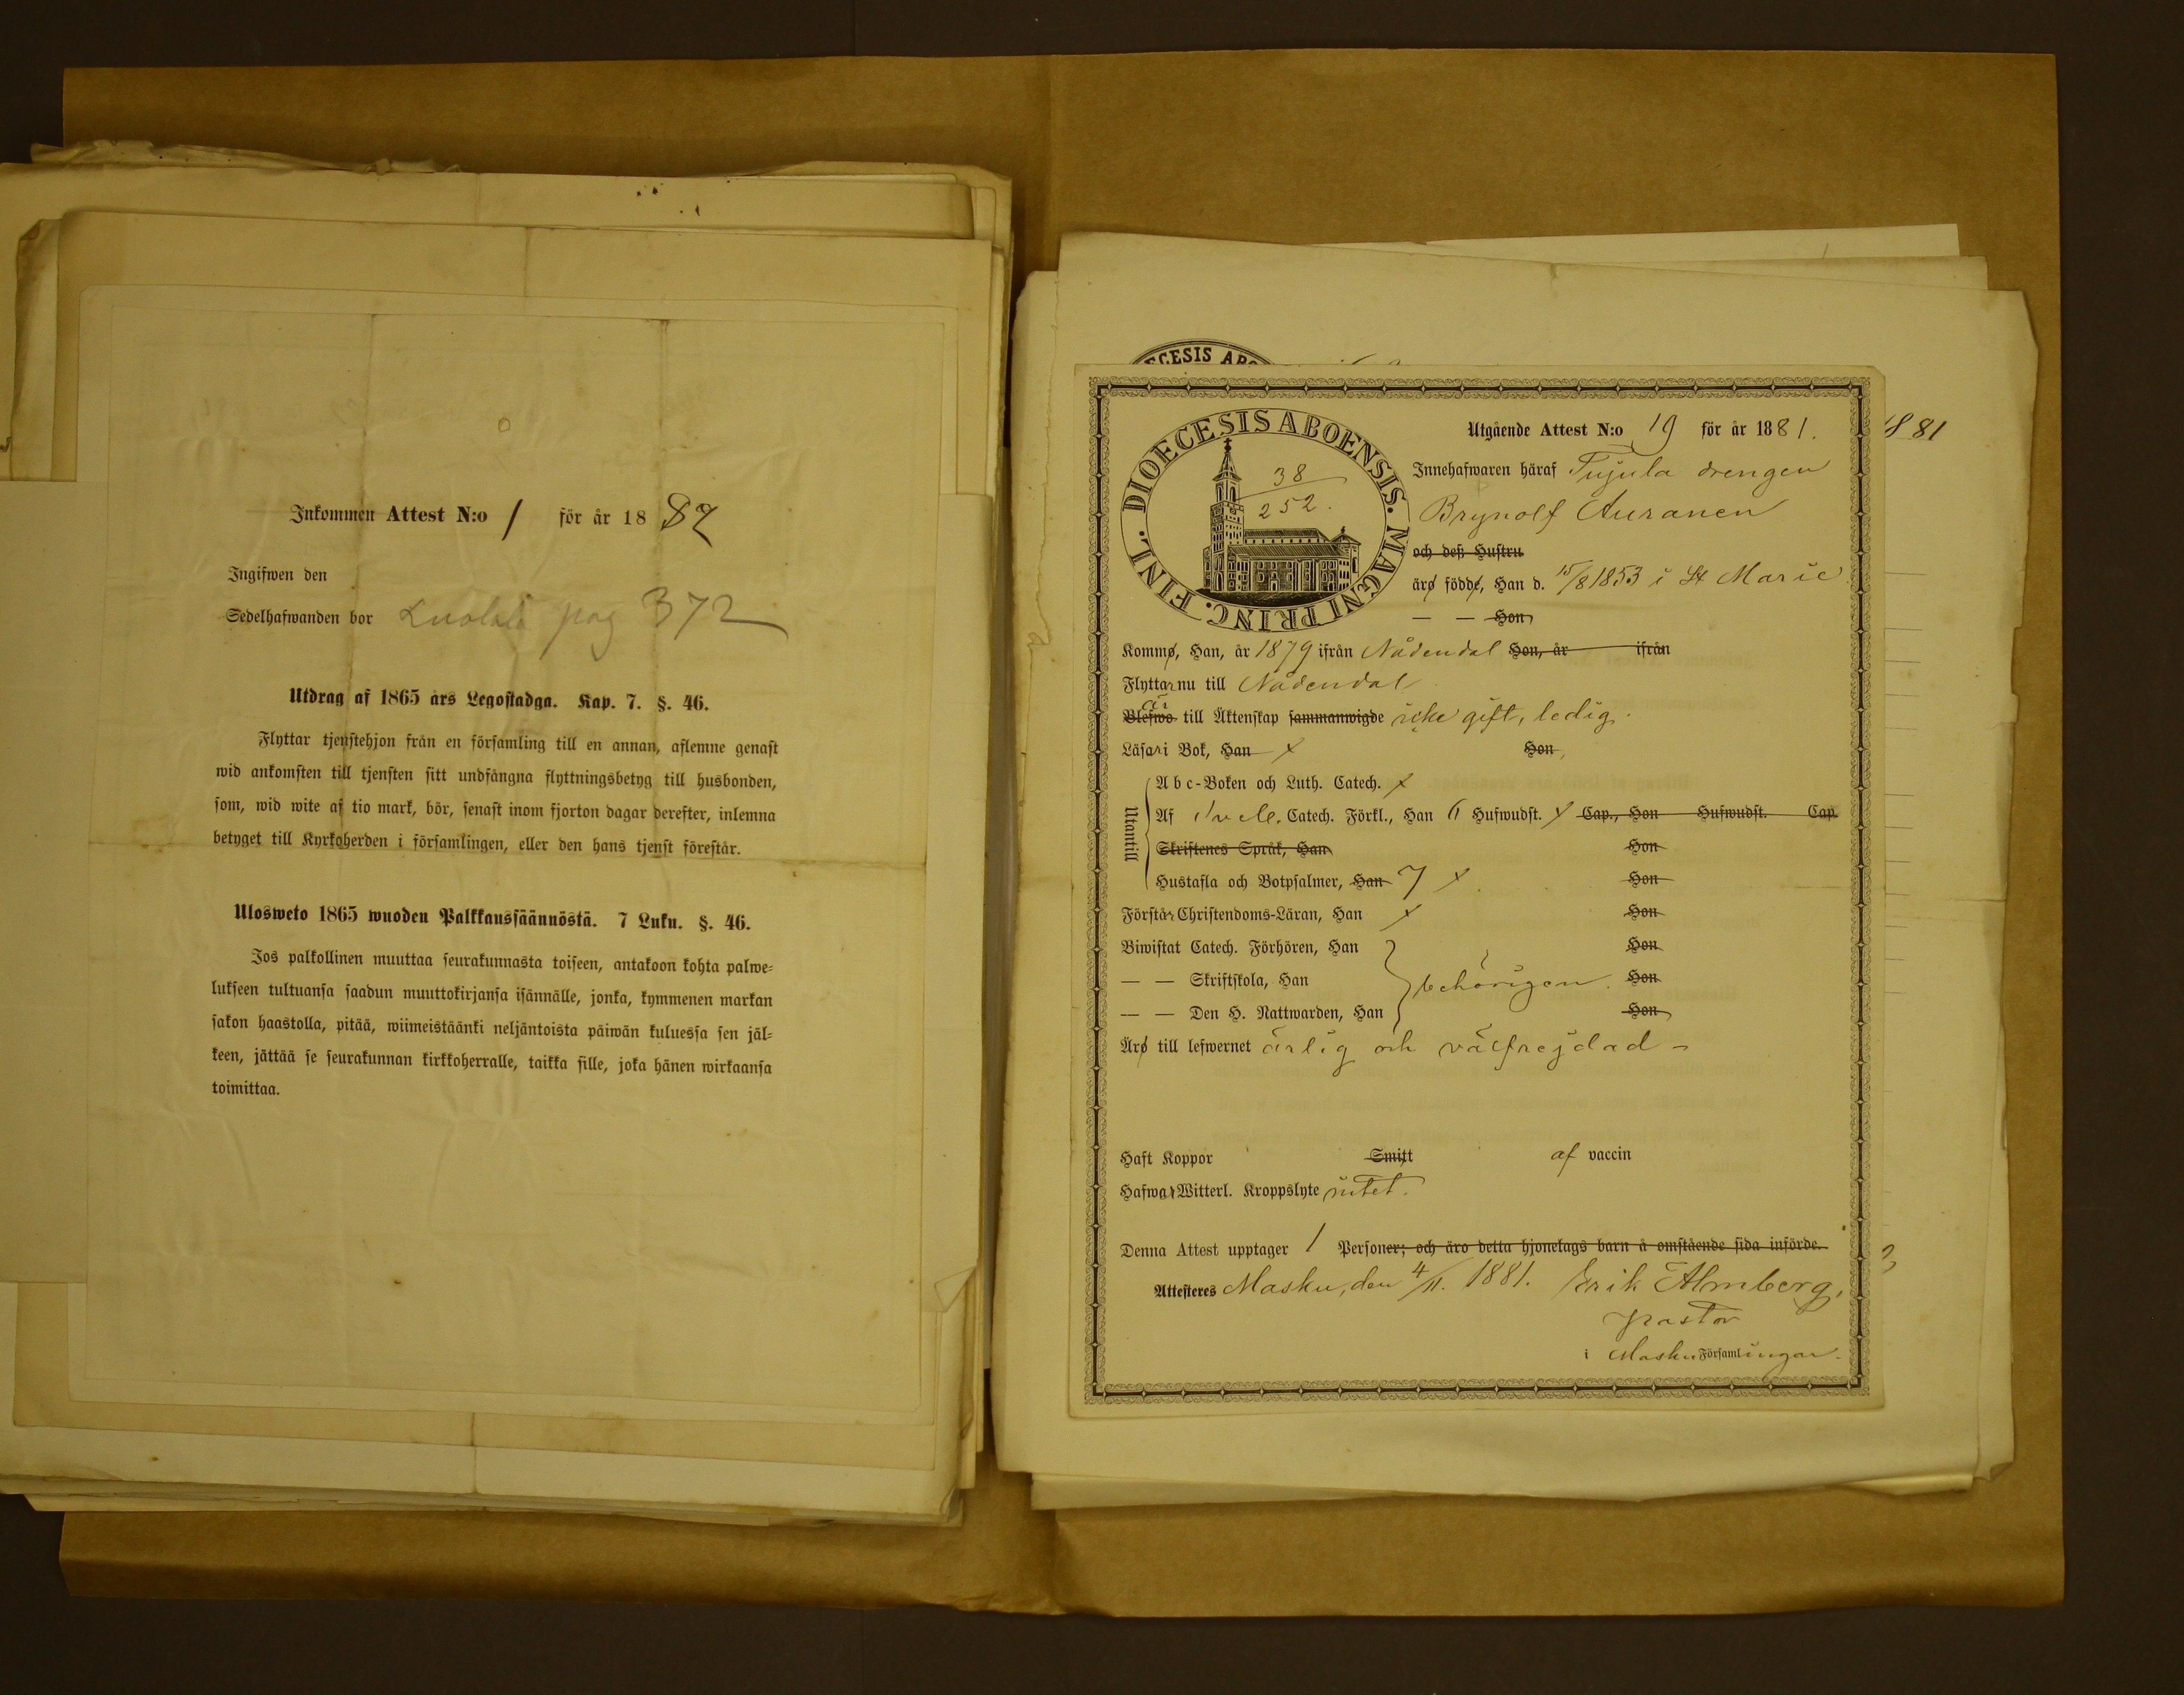 Inkommen Attest N:o 1 för år 1882
Ingifwen den
Sedelhafwanden bor Luolala pag 372
Utdrag af 1865 års Legostadga. Kap. 7. §. 46.
Flyttar tjenstehjon från en församling till en annan, aflemne genast
wid ankomsten till tjensten sitt undfångna flyttningsbetyg till husbonden,
som, wid wite af tio mark, bör, senast inom fjorton dagar derefter, inlemna
betyget till Kyrkoherden i församlingen, eller den hans tjenst förestår.
Ulosweto 1865 wuoden Palkkaussäännöstä. 7 Luku. §. 46.
Jos palkollinen muuttaa seurakunnasta toiseen, antakoon kohta palwe-
lukseen tultuansa saadun muuttokirjansa isännälle, jonka, kymmenen markan
sakon haastolla, pitää, wiimeistäänki neljäntoista päiwän kuluessa sen jäl-
keen, jättää se seurakunnan kirkkoherralle, taikka sille, joka hänen wirkaansa
toimittaa.
DIOECESIS ABOENSIS. MAGNI PRINC. FINL.
38
252.
Utgående Attest N:o 19 för år 1881.
1881
Innehafwaren häraf Tujula drengen
Brynolf Auranen
och deß Hustru
äro födde, Han d. 15/8 1853 i St Marie
— — Hon
Komme, Han, år 1879 ifrån Nådendal Hon, år ifrån
Flyttar nu till Nådendal
är
Blefwo till Äktenskap sammanwigde icke gift, ledig.
Läsari Bok, Han x Hon,
Utantill
A b c-Boken och Luth. Catech. x
Af Catech. Förkl., Han 6 Hufwudst. x Cap., Hon Hufwudst. Cap.
Skriftenes Språk, Han Hon
Hustafla och Botpsalmer, Han 7 x Hon
Förstår Christendoms-Läran, Han x Hon
Biwistat Catech. Förhören, Han Hon
— — Skriftskola, Han behörigen. Hon
— — Den H. Nattwarden, Han Hon
Äro till lefwernet ärlig och välfrejdad -
Haft Koppor Smitt af vaccin
Hafwar Witterl. Kroppslyte intet.
Denna Attest upptager 1 Personer; och äro detta hjonelags barn å omstående sida införde.
Attesteres Masku, den 4/11. 1881. Erik Almberg,
Pastor
i Masku Församlingar.